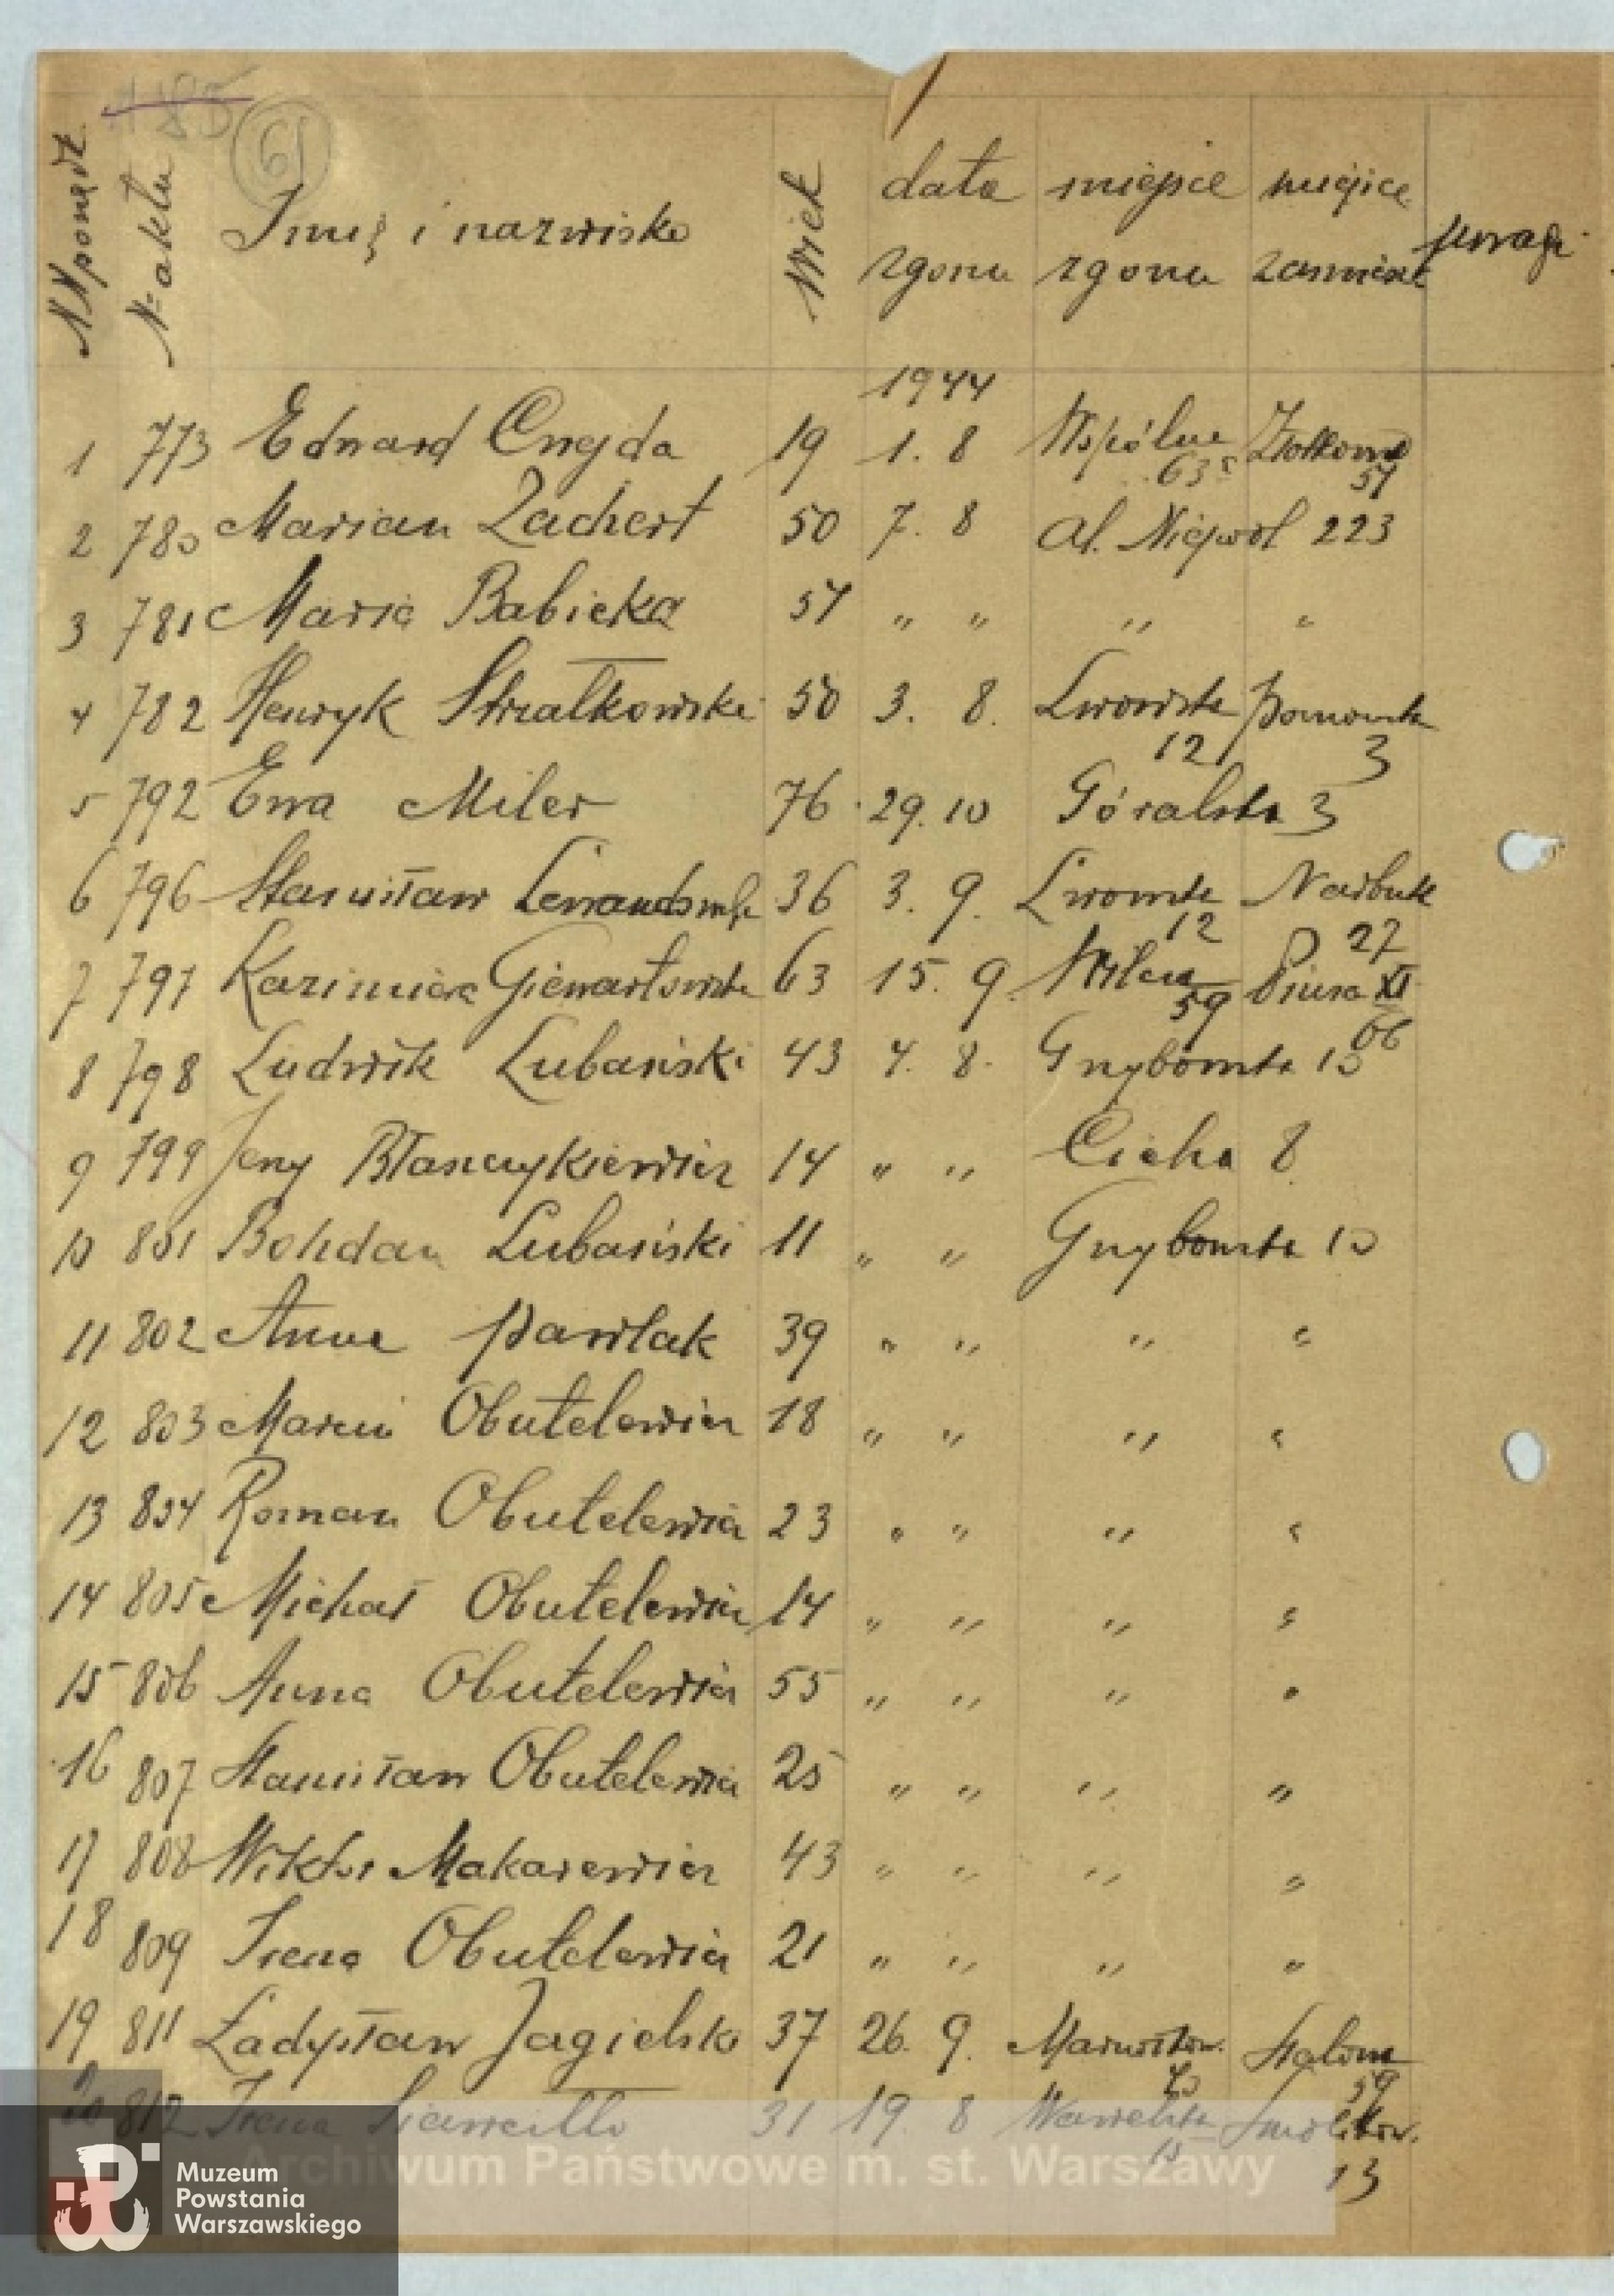 185
61
NN porządk.
№ aktu
Imię i nazwisko
Wiek
data zgonu
miejsce zgonu
miejsce zamieszk
uwagi
1944
1 773 Edward Cwejda 19 1. 8 Wspólna 63 57
2 780 Marian Zachert 50 7. 8 Al. Niepodl 223
3 781 Maria Babicka 57 " " " "
4 782 Henryk Strzałkowski 50 3. 8. Lwowska 12 3
5 792 Ewa Miler 76 29. 10 Góralska 3
6 796 Stanisław Lewandowski 36 3. 9. Lwowska 12 Narbutt 27
7 797 Kazimiera 63 15. 9. Wilcza 59 Piusa XI 66
8 798 Ludwik Lubański 43 4. 8. Grzybowska 10
9 799 Jerzy Błaszczykiewicz 14 " " Cicha 8
10 801 Bohdan Lubański 11 " " Grzybowska 10
11 802 Anna Pawlak 39 " " " "
12 803 Marcin Obutelewicz 18 " " " "
13 804 Roman Obutelewicz 23 " " " "
14 805 Michał Obutelewicz 14 " " " "
15 806 Anna Obutelewicz 55 " " " "
16 807 Stanisław Obutelewicz 25 " " " "
17 808 Wiktor Makarewicz 43 " " " "
18 809 Irena Obutelewicz 21 " " " "
19 811 Ładysław Jagielsk 37 26. 9. Stalowa 59
20 812 Irena 31 19. 8 Wawelska 15 Smolikow. 13
Archiwum Państwowe m. st. Warszawy
Muzeum
Powstania
Warszawskiego